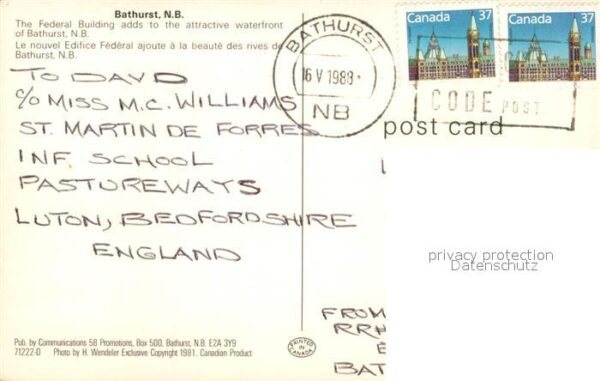 Bathurst, N.B.
The Federal Building adds to the attractive waterfront
of Bathurst, N.B.
Le nouvel Edifice Fédéral ajoute à la beauté des rives de
Bathurst, N.B.
TO DAVD
c/o MISS M.C. WILLIAMS
ST. MARTIN DE FORRES
INF. SCHOOL
PASTUREWAYS
LUTON, BEDFORDSHIRE
ENGLAND
BATHURST
16 V 1989
NB
Canada 37
Canada 37
CODE POST
post card
privacy protection
Datenschutz
FROM
RR#
BAT
Pub. by Communications 58 Promotions, Box 500, Bathurst, N.B. E2A 3Y9
71222-D Photo by H. Wendeler Exclusive Copyright 1981. Canadian Product
PRINTED IN CANADA